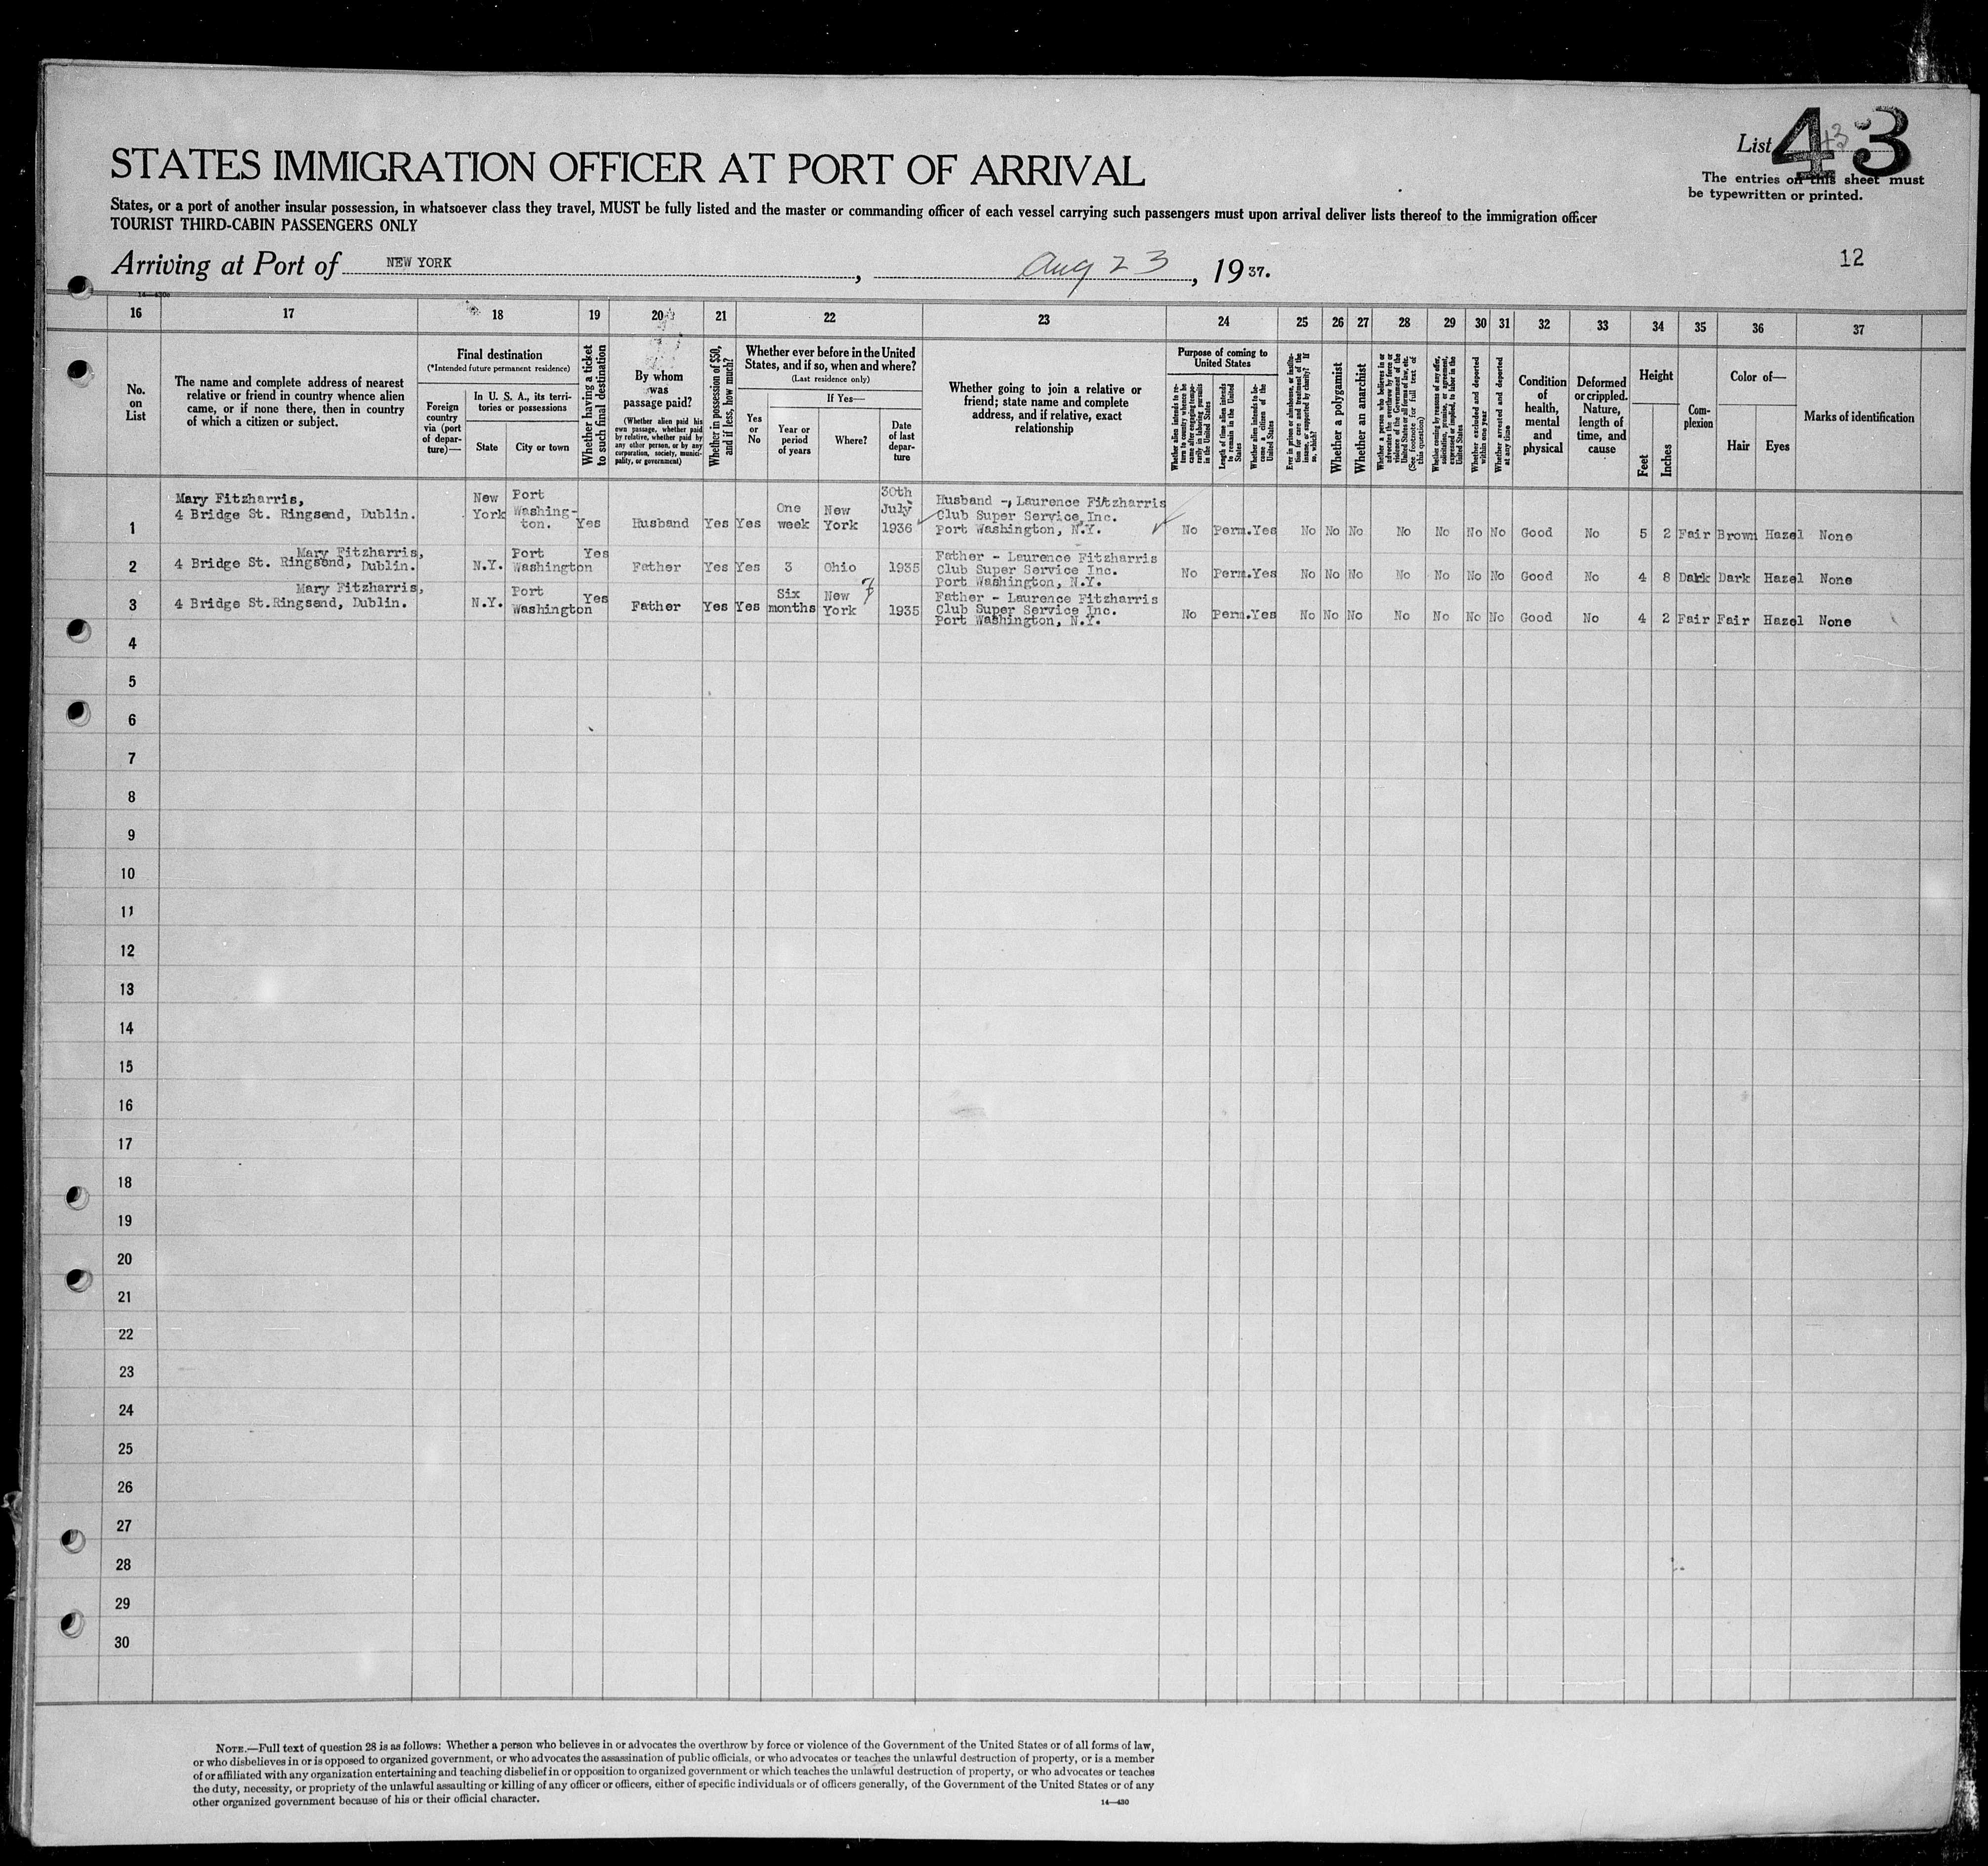 List 43
43
The entries on this sheet must
be typewritten or printed.
STATES IMMIGRATION OFFICER AT PORT OF ARRIVAL
States, or a port of another insular possession, in whatsoever class they travel, MUST be fully listed and the master or commanding officer of each vessel carrying such passengers must upon arrival deliver lists thereof to the immigration officer
TOURIST THIRD-CABIN PASSENGERS ONLY
Arriving at Port of NEW YORK, Aug 23, 1937.
12
16 17 18 19 20 21 22 23 24 25 26 27 28 29 30 31 32 33 34 35 36 37
No. on List
The name and complete address of nearest
relative or friend in country whence alien
came, or if none there, then in country
of which a citizen or subject.
Final destination
(*Intended future permanent residence)
Foreign country via (port of departure)—
In U. S. A., its territories or possessions
State
City or town
Whether having a ticket to such final destination
By whom was passage paid?
(Whether alien paid his own passage, whether paid by relative, whether paid by any other person, or by any corporation, society, municipality, or government)
Whether in possession of $50, and if less, how much?
Whether ever before in the United States, and if so, when and where?
(Last residence only)
Yes or No
If Yes—
Year or period of years
Where?
Date of last departure
Whether going to join a relative or
friend; state name and complete
address, and if relative, exact
relationship
Purpose of coming to United States
Whether alien intends to return to country whence he came after engaging temporarily in laboring pursuits in the United States
Length of time alien intends to remain in the United States
Whether alien intends to become a citizen of the United States
Ever in prison or almshouse, or institution for care and treatment of the insane, or supported by charity? If so, which?
Whether a polygamist
Whether an anarchist
Whether a person who believes in or advocates the overthrow by force or violence of the Government of the United States or all forms of law, etc. (See footnote for full text of this question)
Whether coming by reasons of any offer, solicitation, promise, or agreement, expressed or implied, to labor in the United States
Whether excluded and deported within one year
Whether arrested and deported at any time
Condition of health, mental and physical
Deformed or crippled. Nature, length of time, and cause
Height
Feet
Inches
Complexion
Color of—
Hair
Eyes
Marks of identification
1 Mary Fitzharris, 4 Bridge St. Ringsend, Dublin. New York Port Washing-ton. Yes Husband Yes Yes One week New York 30th July 1936 Husband - Laurence Fitzharris Club Super Service Inc. Port Washington, N.Y. No Perm. Yes No No No No No No No Good No 5 2 Fair Brown Hazel None
2 Mary Fitzharris, 4 Bridge St. Ringsend, Dublin. N.Y. Port Washington Yes Father Yes Yes 3 Ohio 1935 Father - Laurence Fitzharris Club Super Service Inc. Port Washington, N.Y. No Perm. Yes No No No No No No No Good No 4 8 Dark Dark Hazel None
3 Mary Fitzharris, 4 Bridge St. Ringsend, Dublin. N.Y. Port Washington Yes Father Yes Yes Six months New York 1935 Father - Laurence Fitzharris Club Super Service Inc. Port Washington, N.Y. No Perm. Yes No No No No No No No Good No 4 2 Fair Fair Hazel None
4
5
6
7
8
9
10
11
12
13
14
15
16
17
18
19
20
21
22
23
24
25
26
27
28
29
30
NOTE.—Full text of question 28 is as follows: Whether a person who believes in or advocates the overthrow by force or violence of the Government of the United States or of all forms of law,
or who disbelieves in or is opposed to organized government, or who advocates the assassination of public officials, or who advocates or teaches the unlawful destruction of property, or is a member
of or affiliated with any organization entertaining and teaching disbelief in or opposition to organized government or which teaches the unlawful destruction of property, or who advocates or teaches
the duty, necessity, or propriety of the unlawful assaulting or killing of any officer or officers, either of specific individuals or of officers generally, of the Government of the United States or of any
other organized government because of his or their official character.
14—430